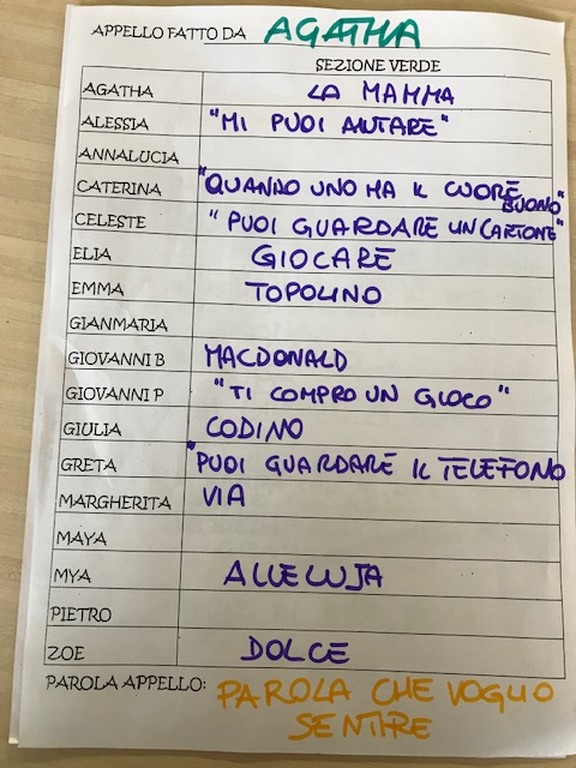 APPELLO FATTO DA AGATHA
SEZIONE VERDE
AGATHA LA MAMMA
ALESSIA "MI PUOI AIUTARE"
ANNALUCIA
CATERINA "QUANDO UNO HA IL CUORE BUONO"
CELESTE "PUOI GUARDARE UN CARTONE"
ELIA GIOCARE
EMMA TOPOLINO
GIANMARIA
GIOVANNI B MACDONALD
GIOVANNI P "TI COMPRO UN GIOCO"
GIULIA CODINO
GRETA "PUOI GUARDARE IL TELEFONO
MARGHERITA VIA
MAYA
MYA ALLELUJA
PIETRO
ZOE DOLCE
PAROLA APPELLO: PAROLA CHE VOGLIO
SENTIRE